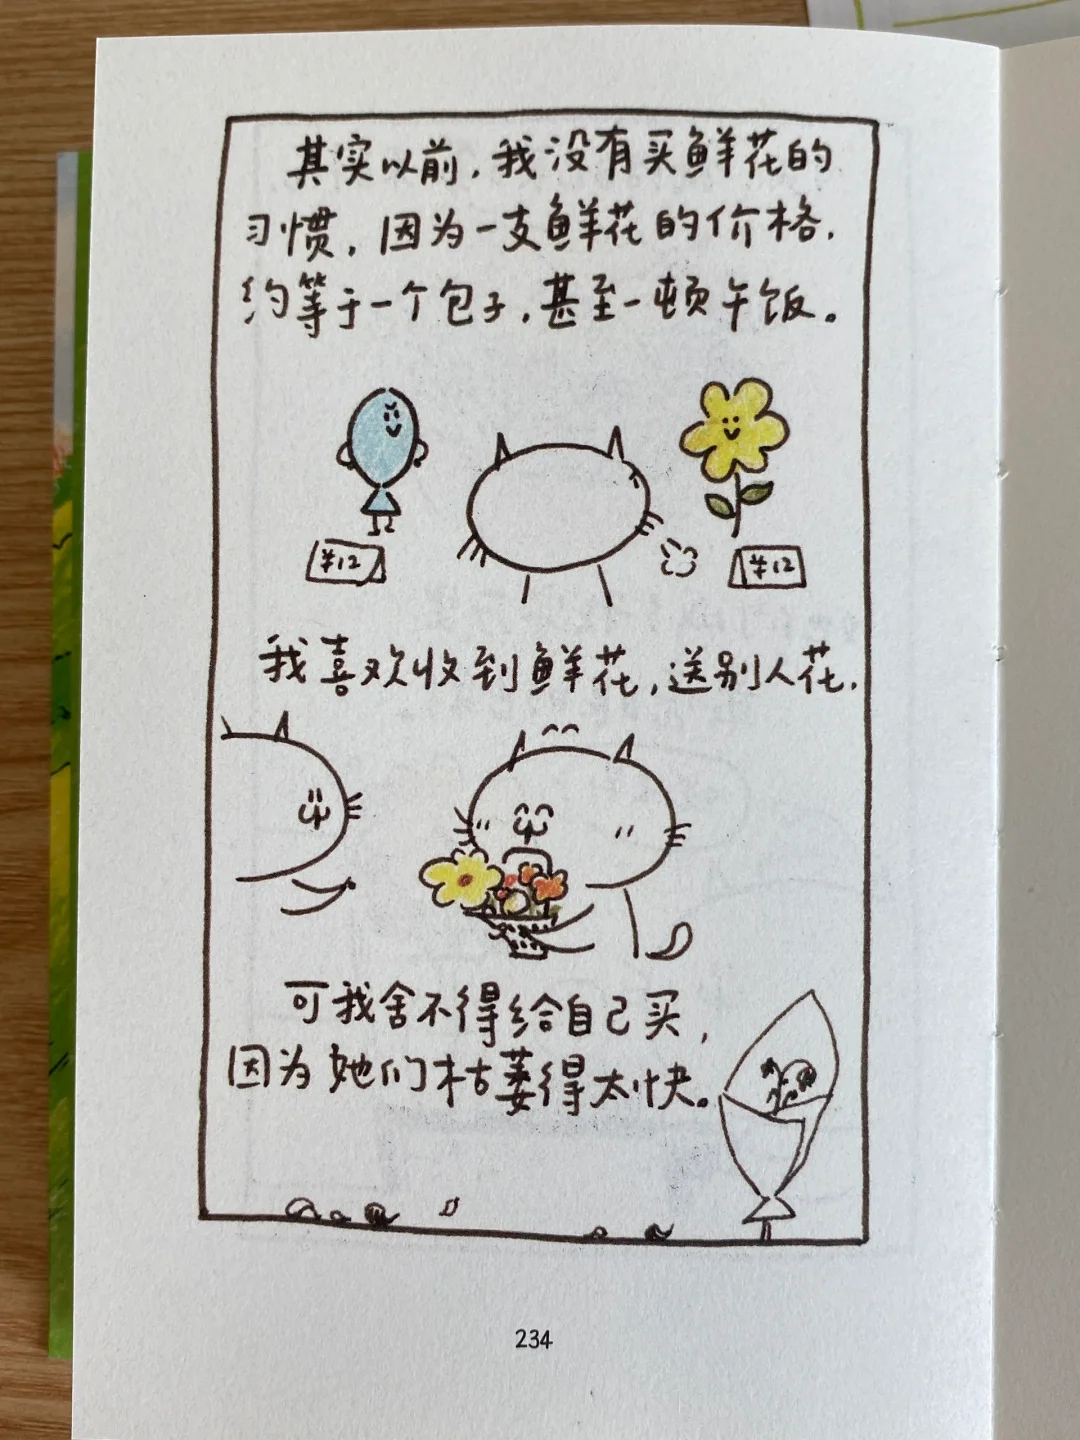 其实以前，我没有买鲜花的
习惯，因为一支鲜花的价格，
约等于一个包子，甚至一顿午饭。
¥12
¥12
我喜欢收到鲜花，送别人花，
可我舍不得给自己买，
因为她们枯萎得太快。
234